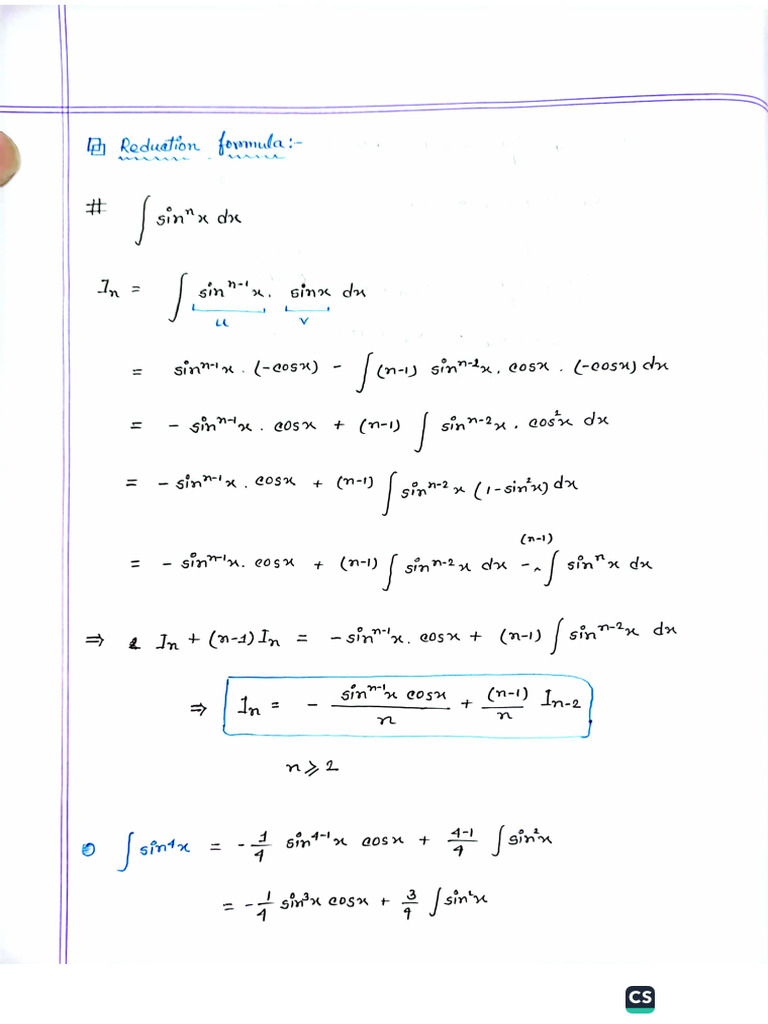 Reduction formula:-
# ∫ sinⁿx dx
Iₙ = ∫ sinⁿ⁻¹x. sinx dx
u v
= sinⁿ⁻¹x . (-cosx) - ∫(n-1) sinⁿ⁻²x. cosx . (-cosx) dx
= - sinⁿ⁻¹x . cosx + (n-1) ∫ sinⁿ⁻²x. cos²x dx
= - sinⁿ⁻¹x . cosx + (n-1) ∫ sinⁿ⁻²x (1-sin²x) dx
= - sinⁿ⁻¹x. cosx + (n-1) ∫ sinⁿ⁻²x dx - ‸(n-1) ∫ sinⁿx dx
⇒ Iₙ + (n-1) Iₙ = - sinⁿ⁻¹x. cosx + (n-1) ∫ sinⁿ⁻²x dx
⇒ Iₙ = - (sinⁿ⁻¹x cosx)/n + (n-1)/n Iₙ₋₂
n ⩾ 2
∫ sin⁴x = - 1/4 sin⁴⁻¹x cosx + (4-1)/4 ∫ sin²x
= - 1/4 sin³x cosx + 3/4 ∫ sin²x
CS